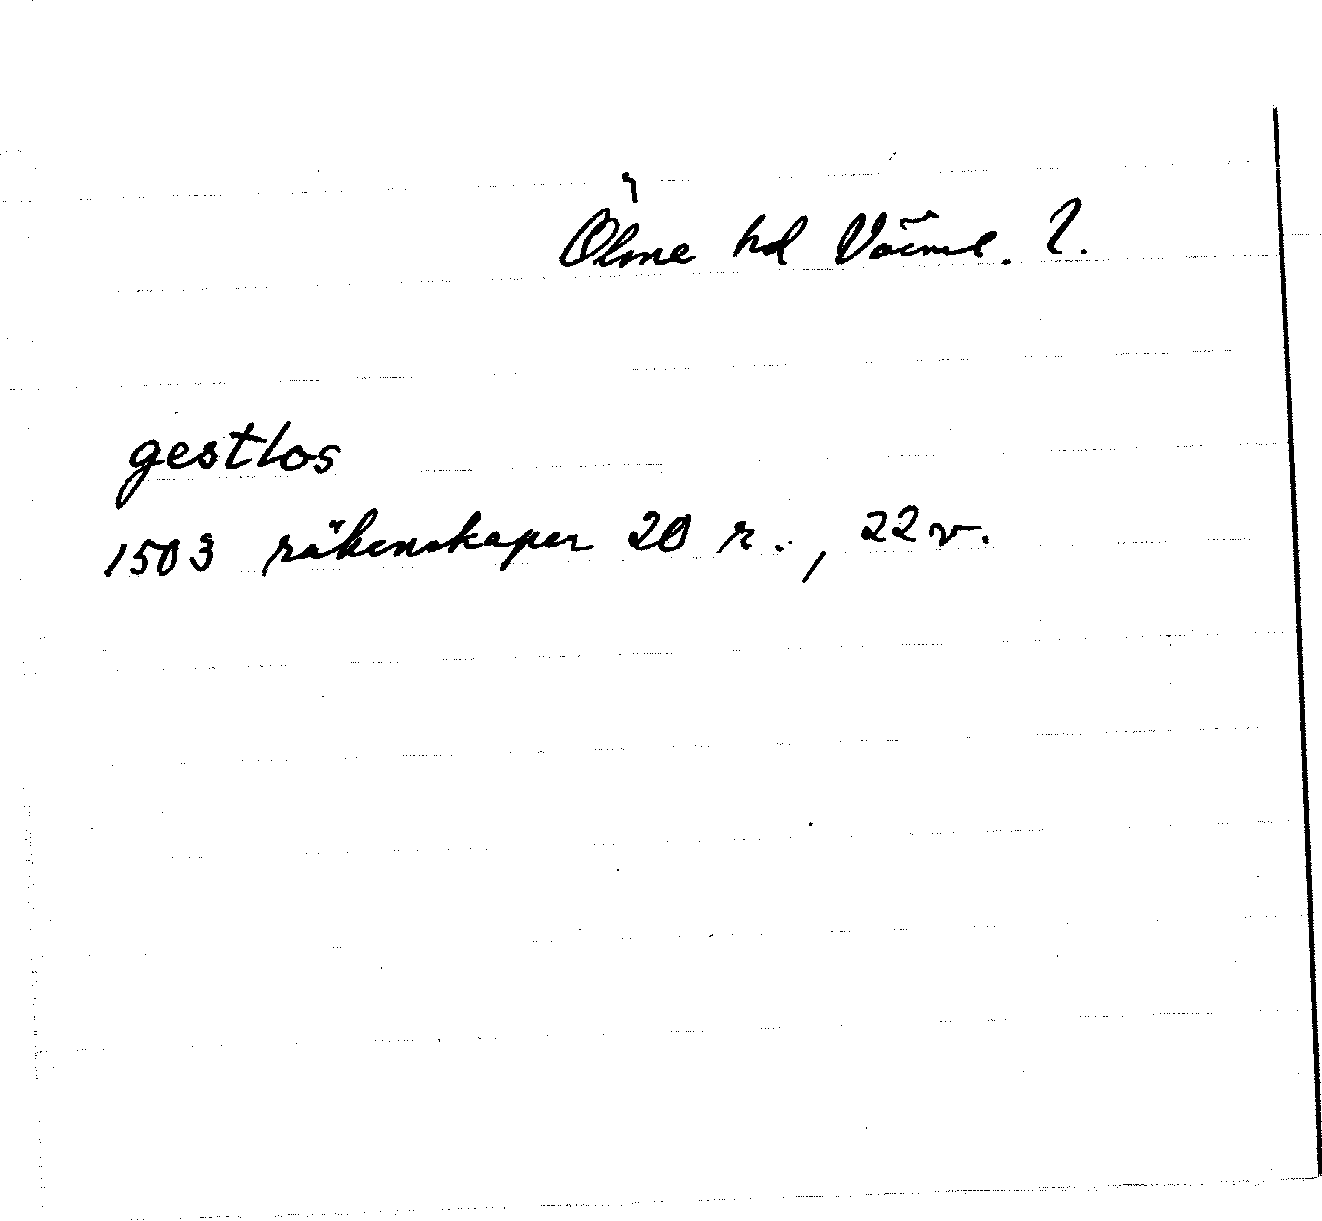 Ölme hd Värml. l.
gestlos
1503 räkenskaper 20 r., 22 v.